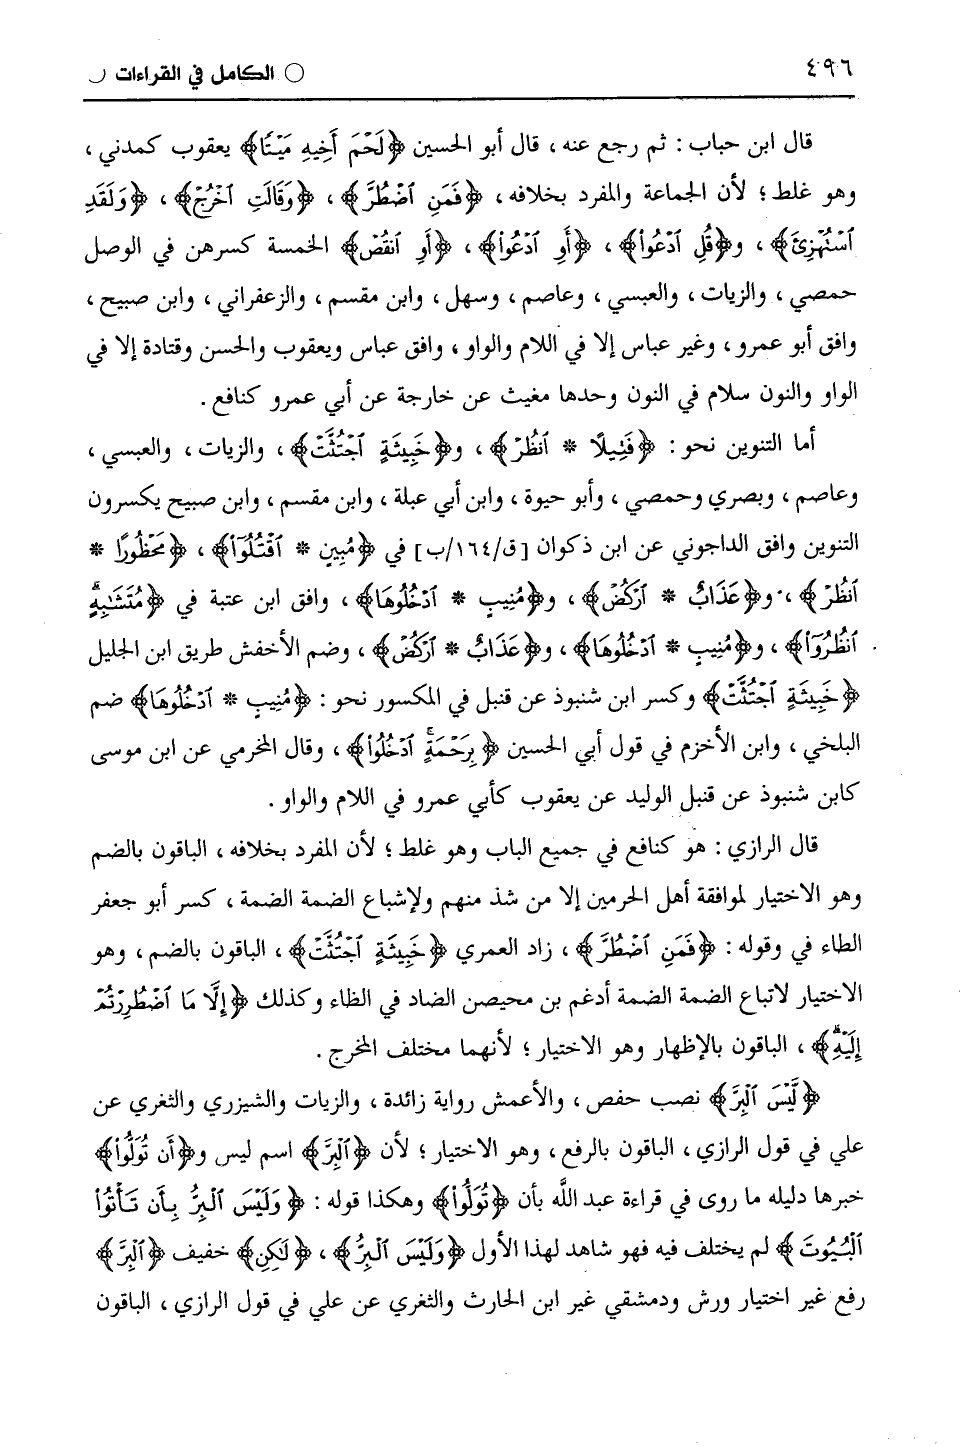 ٤٩٦
الكامل في القراءات
قال ابن حباب: ثم رجع عنه، قال أبو الحسين ﴿لَحْمَ أَخِيهِ مَيْتًا﴾ يعقوب كمدني،
وهو غلط؛ لأن الجماعة والمفرد بخلافه، ﴿فَمَنِ اضْطُرَّ﴾، ﴿وَقَالَتِ اخْرُجْ﴾، ﴿وَلَقَدِ
اسْتُهْزِئَ﴾، و﴿قُلِ ادْعُوا﴾، ﴿أَوِ ادْعُوا﴾، ﴿أَوِ انقُصْ﴾ الخمسة كسرهن في الوصل
حمصي، والزيات، والعبسي، وعاصم، وسهل، وابن مقسم، والزعفراني، وابن صبيح،
وافق أبو عمرو، وغير عباس إلا في اللام والواو، وافق عباس ويعقوب والحسن وقتادة إلا في
الواو والنون سلام في النون وحدها مغيث عن خارجة عن أبي عمرو كنافع.
أما التنوين نحو: ﴿فَتِيلًا * انظُرْ﴾، و﴿خَبِيثَةٍ اجْتُثَّتْ﴾، والزيات، والعبسي،
وعاصم، وبصري وحمصي، وأبو حيوة، وابن أبي عبلة، وابن مقسم، وابن صبيح يكسرون
التنوين وافق الداجوني عن ابن ذكوان [ق/١٦٤/ب] في ﴿مُبِينٍ * اقْتُلُوا﴾، ﴿مَحْظُورًا *
انظُرْ﴾، و﴿عَذَابٌ * ارْكُضْ﴾، و﴿مُنِيبٍ * ادْخُلُوهَا﴾، وافق ابن عتبة في ﴿مُتَشَابِهٍ
انظُرُوا﴾، و﴿مُنِيبٍ * ادْخُلُوهَا﴾، و﴿عَذَابٌ * ارْكُضْ﴾، وضم الأخفش طريق ابن الجليل
﴿خَبِيثَةٍ اجْتُثَّتْ﴾ وكسر ابن شنبوذ عن قنبل في المكسور نحو: ﴿مُنِيبٍ * ادْخُلُوهَا﴾ ضم
البلخي، وابن الأخزم في قول أبي الحسين ﴿بِرَحْمَةٍ ادْخُلُوا﴾، وقال المخرمي عن ابن موسى
كابن شنبوذ عن قنبل الوليد عن يعقوب كأبي عمرو في اللام والواو.
قال الرازي: هو كنافع في جميع الباب وهو غلط؛ لأن المفرد بخلافه، الباقون بالضم
وهو الاختيار لموافقة أهل الحرمين إلا من شذ منهم ولإشباع الضمة الضمة، كسر أبو جعفر
الطاء في وقوله: ﴿فَمَنِ اضْطُرَّ﴾، زاد العمري ﴿خَبِيثَةٍ اجْتُثَّتْ﴾، الباقون بالضم، وهو
الاختيار لاتباع الضمة الضمة أدغم بن محيصن الضاد في الظاء وكذلك ﴿إِلَّا مَا اضْطُرِرْتُمْ
إِلَيْهِ﴾، الباقون بالإظهار وهو الاختيار؛ لأنهما مختلف المخرج.
﴿لَّيْسَ الْبِرَّ﴾ نصب حفص، والأعمش رواية زائدة، والزيات والشيزري والثغري عن
علي في قول الرازي، الباقون بالرفع، وهو الاختيار؛ لأن ﴿الْبِرَّ﴾ اسم ليس و﴿أَن تُوَلُّوا﴾
خبرها دليله ما روى في قراءة عبد الله بأن ﴿تُوَلُّوا﴾ وهكذا قوله: ﴿وَلَيْسَ الْبِرُّ بِأَن تَأْتُوا
الْبُيُوتَ﴾ لم يختلف فيه فهو شاهد لهذا الأول ﴿وَلَيْسَ الْبِرُّ﴾، ﴿لَكِنِ﴾ خفيف ﴿الْبِرَّ﴾
رفع غير اختيار ورش ودمشقي غير ابن الحارث والثغري عن علي في قول الرازي، الباقون